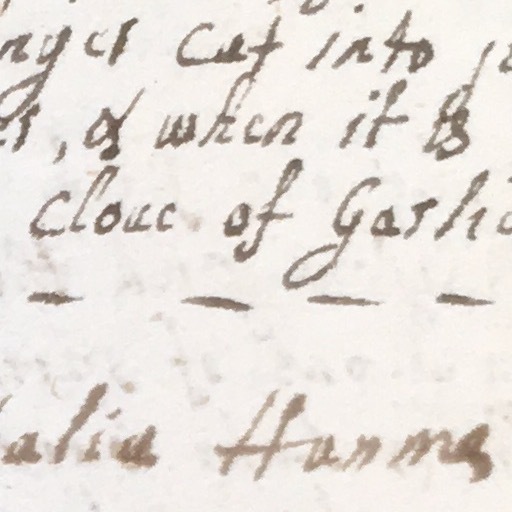 nges Cut into
es, & when it is
Cloue of Garli
alia Hannas